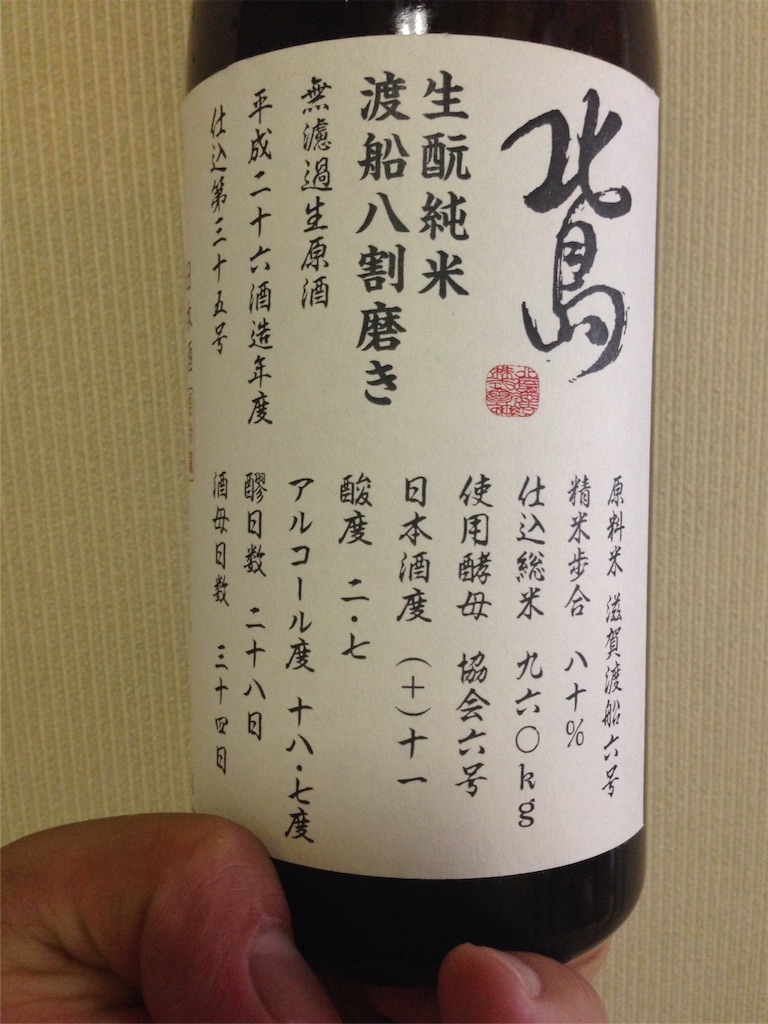 北島
生酛純米
渡船八割磨き
無濾過生原酒
平成二十六酒造年度
仕込第三十五号
原料米 滋賀渡船六号
精米歩合 八十%
仕込総米 九六〇kg
使用酵母 協会六号
日本酒度 (+)十一
酸度 二・七
アルコール度 十八・七度
醪日数 二十八日
酒母日数 三十四日
日本酒